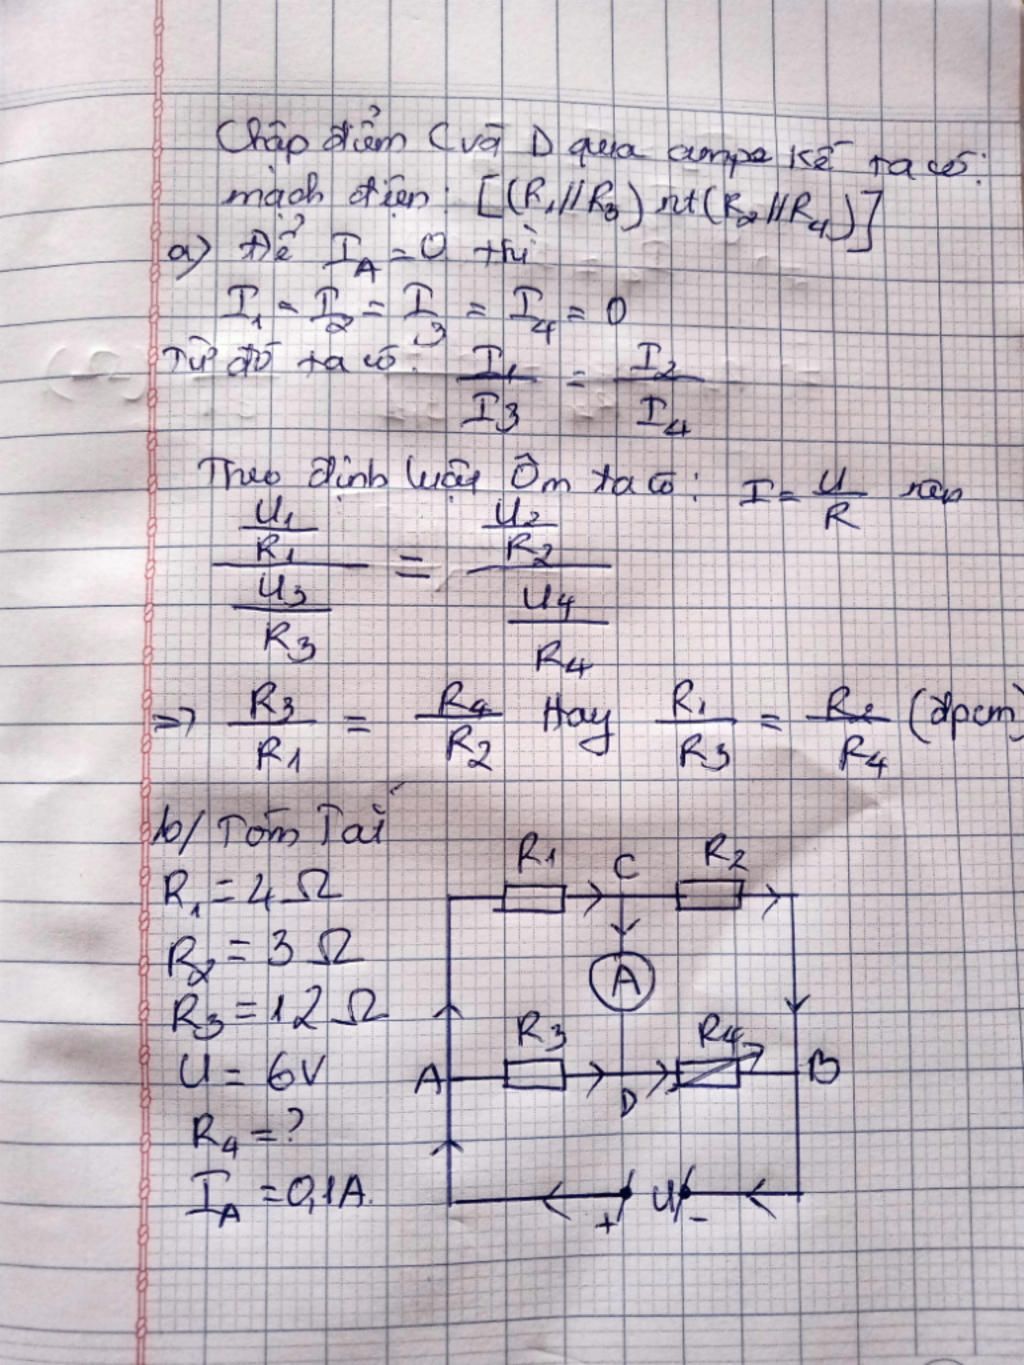 Chập điểm C và D qua ampe kế ta có:
mạch điện: [(R₁//R₃) nt (R₂//R₄)]
a) Để I_A = 0 thì
I₁ = I₂ = I₃ = I₄ = 0
Từ đó ta có: I₁/I₃ = I₂/I₄
Theo định luật Ôm ta có: I = U/R nên
(U₁/R₁)/(U₃/R₃) = (U₂/R₂)/(U₄/R₄)
=> R₃/R₁ = R₄/R₂ Hay R₁/R₃ = R₂/R₄ (đpcm)
b/ Tóm Tắt
R₁ = 4 Ω
R₂ = 3 Ω
R₃ = 12 Ω
U = 6V
R₄ = ?
I_A = 0,1A.
R1 C R2
A
R3 R4
A D B
+ U -